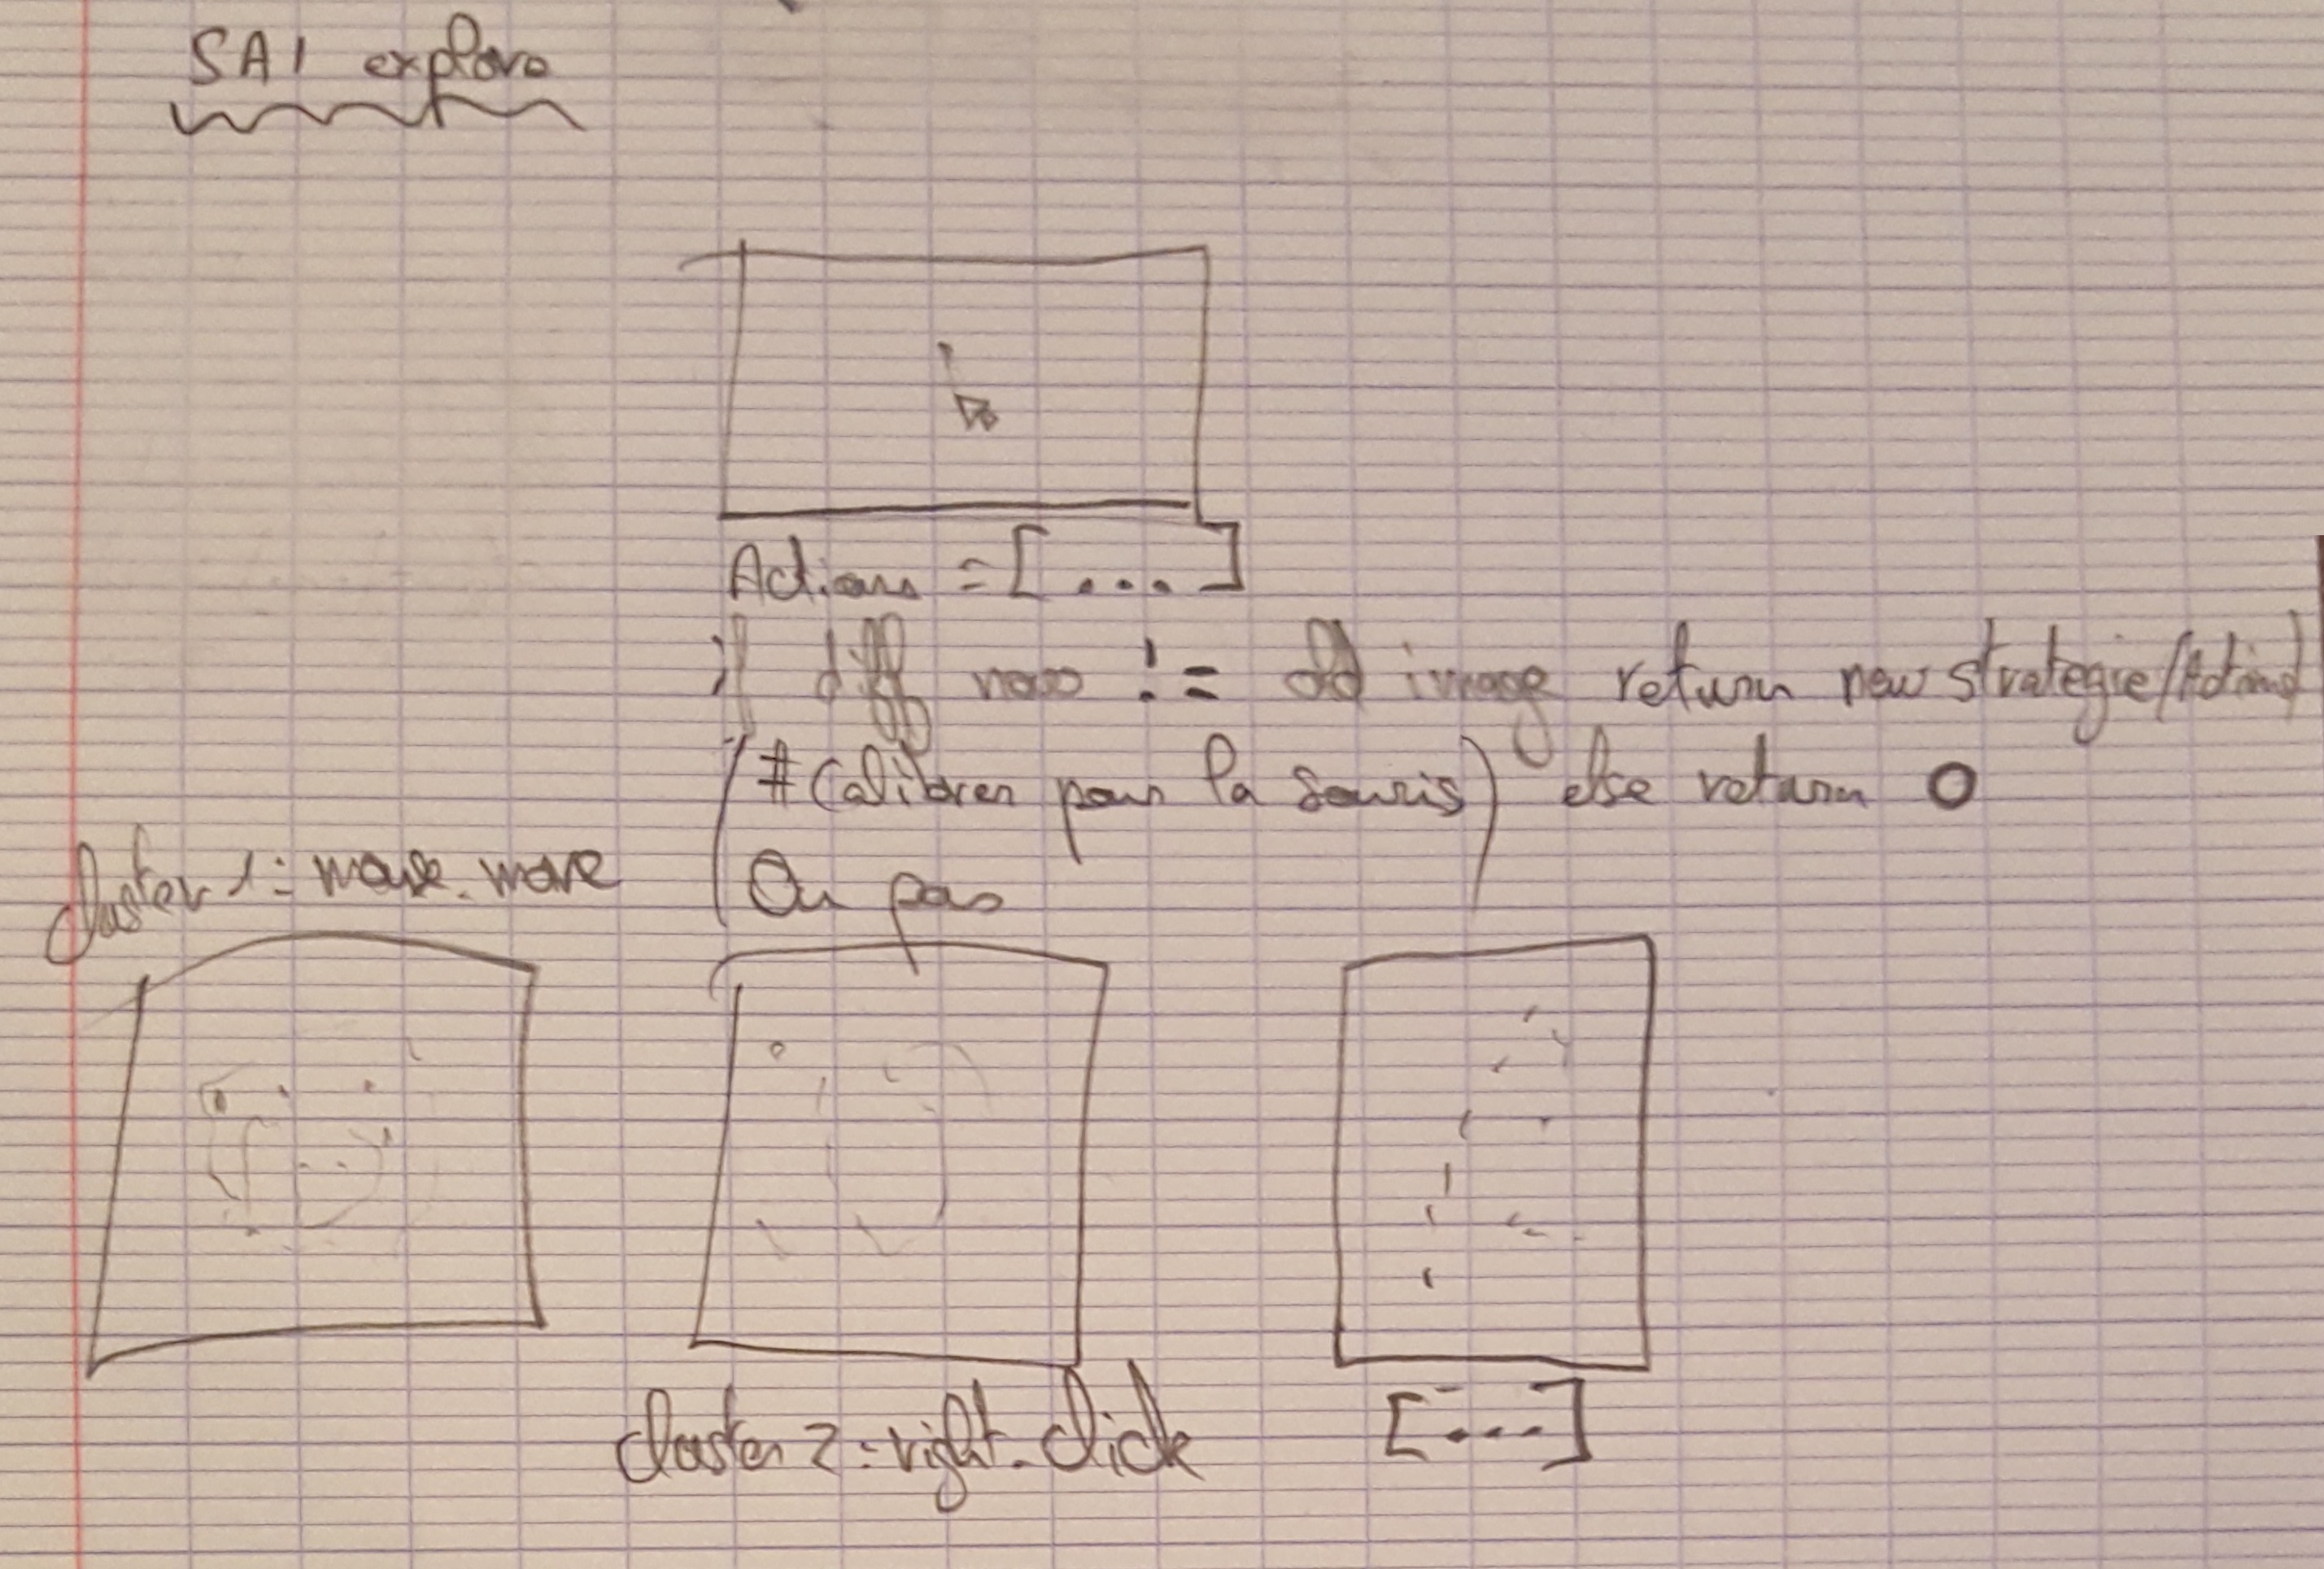 SAI explore
Actions = [...]
if diff new != old image return new strategie/Actions
(#Calibrer pour la souris) else return 0
Ou pas
cluster 1: mouse.move
cluster 2: right.click
[....]